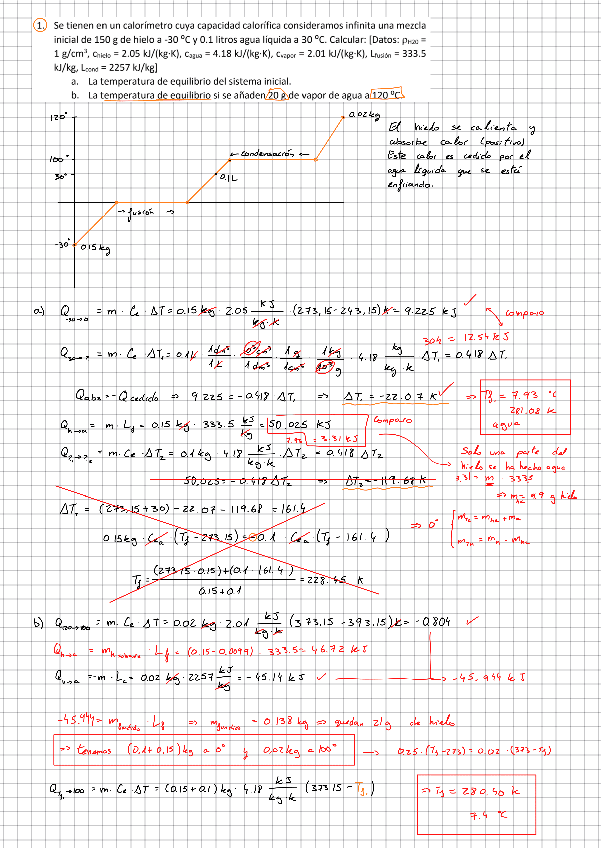 1. Se tienen en un calorímetro cuya capacidad calorífica consideramos infinita una mezcla
inicial de 150 g de hielo a -30 ºC y 0.1 litros agua líquida a 30 ºC. Calcular: [Datos: ρH2O =
1 g/cm³, chielo = 2.05 kJ/(kg·K), cagua = 4.18 kJ/(kg·K), cvapor = 2.01 kJ/(kg·K), Lfusión = 333.5
kJ/kg, Lcond = 2257 kJ/kg]
a. La temperatura de equilibrio del sistema inicial.
b. La temperatura de equilibrio si se añaden 20 g de vapor de agua a 120 ºC.
120°
0.02 kg
100°
← condensación →
30°
0.1L
→ fusión →
-30°
0.15 kg
El hielo se calienta y
absorbe calor (positivo)
Este calor es cedido por el
agua líquida que se está
enfriando.
a) Q-30→0 = m · Ce · ΔT = 0.15 kg · 2.05 kJ/kg·K · (273,15-243,15)K = 9.225 kJ ✓
comparo
30→ = 12.54 kJ
Q30→? = m · Ce · ΔT1 = 0.1 · 4.18 · ΔT1 = 0.418 ΔT1
Qabs = -Qcedido ⇒ 9.225 = -0.418 ΔT1 ⇒ ΔT1 = -22.07 K ✓
⇒ Tf1 = 7.93 ºC
281.08 K
agua
Qh→a = m · Lf = 0.15 kg · 333.5 kJ/kg = 50.025 kJ
comparo
7.93 = 3.31 kJ
Q = m · Ce · ΔT2 = 0.1 kg · 4.18 kJ/kg·K · ΔT2 = 0.418 ΔT2
50,025 = -0.418 ΔT2 ⇒ ΔT2 = -119.68 K
Solo una parte del
hielo se ha hecho agua
3.31 = m 333.5
⇒ 9.9 g hielo
= (273,15+30) - 22.07 - 119.68 = 161.4
⇒ 0°
0.15 kg · Cea (Tf - 273,15) = 0.1 · Cea (Tf - 161.4)
Tf = (273,15·0.15)+(0.1·161.4) / 0.15+0.1 = 228.45 K
b) Q120→100 = m · Ce · ΔT = 0.02 kg · 2.01 kJ/kg·K (373,15 - 393,15)K = -0.804 ✓
Qh→a = · Lf = (0.15 - 0.0099) · 333.5 = 46.72 kJ
Qv→a = -m · Lc = 0.02 kg · 2257 kJ/kg = -45.14 kJ ✓ → -45.944 kJ
-45.944 = mfundido · Lf ⇒ mfundido = 0.138 kg ⇒ quedan 21g de hielo
⇒ tenemos (0.1+0.15) kg a 0° y 0,02 kg a 100° → 0.25 · (Tf - 273) = 0.02 · (373 - Tf)
Q = m · Ce · ΔT = (0.15+0.1) kg · 4.18 kJ/kg·K (373.15 - Tf)
⇒ Tf = 280.50 K
7.4 ºC